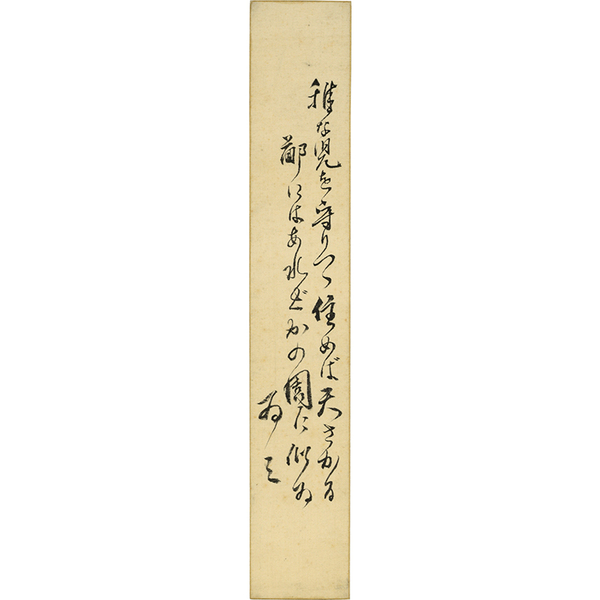 稚な児を守りつゝ住めば天さかる
鄙にはあれどかの園に似る